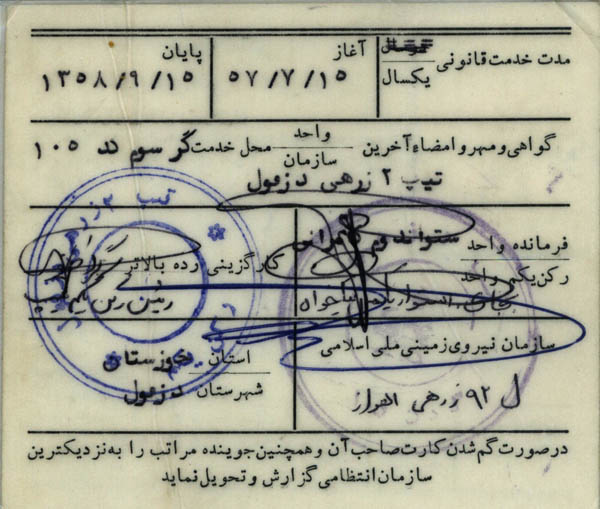 مدت خدمت قانونی یکسال
آغاز ۵۷/۷/۱۵
پایان ۱۳۵۸/۹/۱۵
گواهی و مهر و امضاء آخرین واحد سازمان محل خدمت گر سوم تد ۱۰۵
تیپ ۲ زرهی دزفول
فرمانده واحد ستوان
رکن یکم واحد
کارگزینی رده بالاتر
رئیس رکن یکم تیپ
سازمان نیروی زمینی ملی اسلامی
ل ۹۲ زرهی اهواز
استان خوزستان
شهرستان دزفول
در صورت گم شدن کارت صاحب آن و همچنین جوینده مراتب را به نزدیکترین
سازمان انتظامی گزارش و تحویل نماید